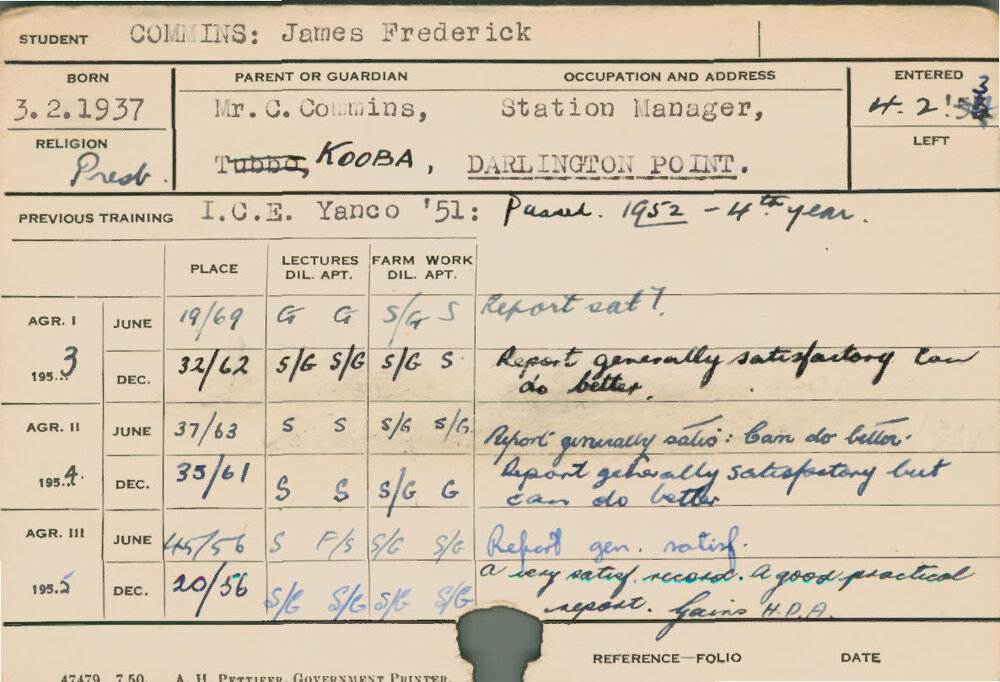 STUDENT COMMINS: James Frederick
BORN PARENT OR GUARDIAN OCCUPATION AND ADDRESS ENTERED
3.2.1937 Mr. C. Commins, Station Manager, 4.2.'53
RELIGION LEFT
Presb. Tubbo, KOOBA, DARLINGTON POINT.
PREVIOUS TRAINING I.C.E. Yanco '51: Passed. 1952 - 4th year.
PLACE LECTURES FARM WORK
DIL. APT. DIL. APT.
AGR. I JUNE 19/69 G G S/G S Report sat.
1953 DEC. 32/62 S/G S/G S/G S Report generally satisfactory Can
do better.
AGR. II JUNE 37/63 S S S/G S/G. Report generally satis: Can do better.
1954 DEC. 35/61 S S S/G G Report generally satisfactory but
can do better
AGR. III JUNE 45/56 S F/S S/G S/G Report gen. satisf.
1955 DEC. 20/56 S/G S/G S/G S/G A very satisf. record. A good practical
report. Gains H.D.A.
REFERENCE—FOLIO DATE
47479 7.50. A. H. PETTIFER, GOVERNMENT PRINTER.